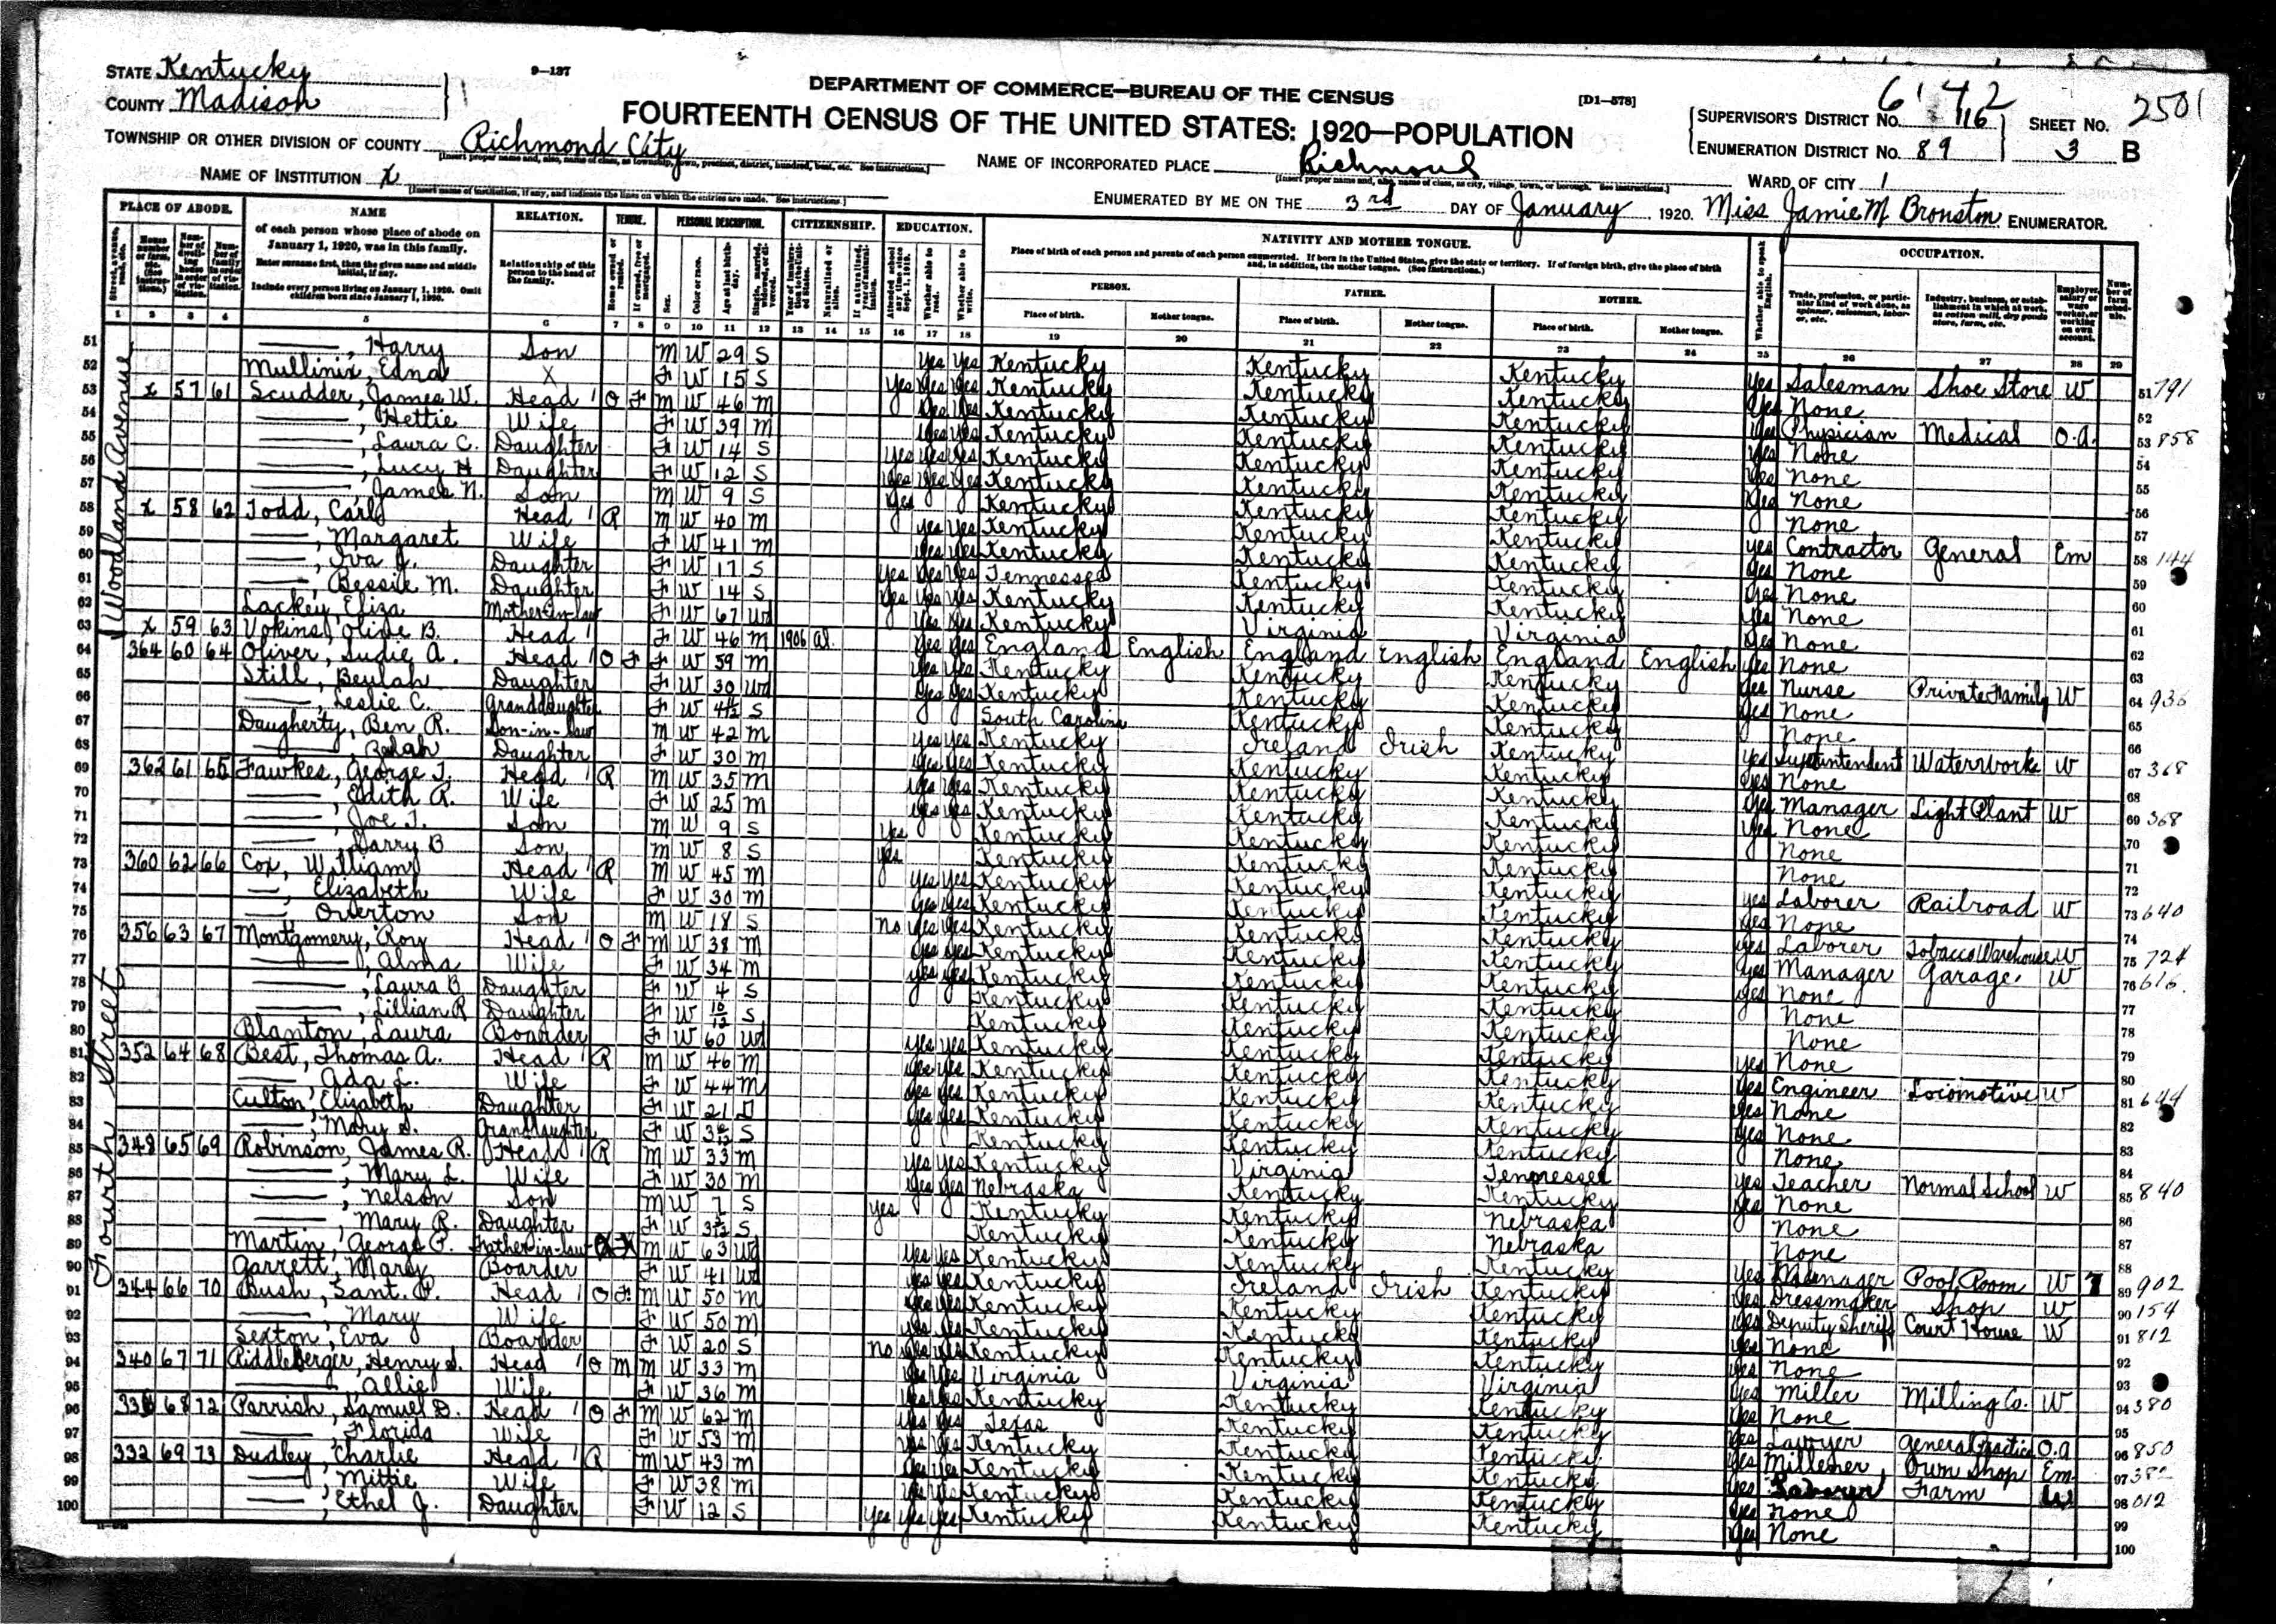 STATE Kentucky
COUNTY Madison
9—137
DEPARTMENT OF COMMERCE—BUREAU OF THE CENSUS
[D1—578]
FOURTEENTH CENSUS OF THE UNITED STATES: 1920—POPULATION
SUPERVISOR'S DISTRICT No.
ENUMERATION DISTRICT No. 89
SHEET No. 3 B
2501
TOWNSHIP OR OTHER DIVISION OF COUNTY Richmond City
NAME OF INCORPORATED PLACE Richmond
WARD OF CITY 1
NAME OF INSTITUTION x
[Insert name of institution, if any, and indicate the lines on which the entries are made. See instructions.]
ENUMERATED BY ME ON THE 3rd DAY OF January, 1920. Miss Jamie M Bronston ENUMERATOR.
PLACE OF ABODE. NAME RELATION. TENURE. PERSONAL DESCRIPTION. CITIZENSHIP. EDUCATION. NATIVITY AND MOTHER TONGUE. OCCUPATION.
of each person whose place of abode on January 1, 1920, was in this family.
Enter surname first, then the given name and middle initial, if any.
Include every person living on January 1, 1920. Omit children born since January 1, 1920.
Relationship of this person to the head of the family.
Place of birth of each person and parents of each person enumerated. If born in the United States, give the state or territory. If of foreign birth, give the place of birth and, in addition, the mother tongue. (See instructions.)
PERSON. FATHER. MOTHER.
Place of birth. Mother tongue. Place of birth. Mother tongue. Place of birth. Mother tongue.
1 2 3 4 5 6 7 8 9 10 11 12 13 14 15 16 17 18 19 20 21 22 23 24 25 26 27 28 29
Woodland Avenue
51 ——, Harry Son M W 29 S Yes Yes Kentucky Kentucky Kentucky Yes Salesman Shoe Store W 51 791
52 Mullinix, Edna X F W 15 S Yes Yes Yes Kentucky Kentucky Kentucky Yes None 52
53 x 57 61 Scudder, James W. Head 1 O F M W 46 M Yes Yes Kentucky Kentucky Kentucky Yes Physician Medical O.A. 53 858
54 ——, Hettie Wife F W 39 M Yes Yes Kentucky Kentucky Kentucky Yes None 54
55 ——, Laura C. Daughter F W 14 S Yes Yes Yes Kentucky Kentucky Kentucky Yes None 55
56 ——, Lucy H Daughter F W 12 S Yes Yes Yes Kentucky Kentucky Kentucky Yes None 56
57 ——, James N. Son M W 9 S Yes Kentucky Kentucky Kentucky None 57
58 x 58 62 Todd, Carl Head 1 R M W 40 M Yes Yes Kentucky Kentucky Kentucky Yes Contractor General Em 58 144
59 ——, Margaret Wife F W 41 M Yes Yes Kentucky Kentucky Kentucky Yes None 59
60 ——, Iva J. Daughter F W 17 S Yes Yes Yes Tennessee Kentucky Kentucky Yes None 60
61 ——, Bessie M. Daughter F W 14 S Yes Yes Yes Kentucky Kentucky Kentucky Yes None 61
62 Lackey Eliza Mother-in-law F W 67 Wd Yes Yes Kentucky Virginia Virginia Yes None 62
63 x 59 63 Vokins, Olive B. Head 1 F W 46 M 1906 Al. Yes Yes England English England English England English Yes None 63
64 364 60 64 Oliver, Sudie A. Head 1 O F F W 59 M Yes Yes Kentucky Kentucky Kentucky Yes Nurse Private Family W 64 936
65 Still, Beulah Daughter F W 30 Wd Yes Yes Kentucky Kentucky Kentucky Yes None 65
66 ——, Leslie C. Granddaughter F W S South Carolina Kentucky Kentucky None 66
67 Daugherty, Ben R. Son-in-law M W 42 M Yes Yes Kentucky Ireland Irish Kentucky Yes Suptintendent Waterworks W 67 368
68 Daughter F W 30 M Yes Yes Kentucky Kentucky Kentucky Yes None 68
69 362 61 65 Fawkes, George T. Head 1 R M W 35 M Yes Yes Kentucky Kentucky Kentucky Yes Manager Light Plant W 69 368
70 ——, Edith A. Wife F W 25 M Yes Yes Kentucky Kentucky Kentucky Yes None 70
71 ——, Joe T. Son M W 9 S Yes Kentucky Kentucky Kentucky None 71
72 ——, Harry B Son M W 8 S Yes Kentucky Kentucky Kentucky None 72
73 360 62 66 Cox, William Head 1 R M W 45 M Yes Yes Kentucky Kentucky Kentucky Yes Laborer Railroad W 73 640
74 ——, Elizabeth Wife F W 30 M Yes Yes Kentucky Kentucky Kentucky Yes None 74
75 ——, Overton Son M W 18 S No Yes Yes Kentucky Kentucky Kentucky Yes Laborer Tobacco Warehouse W 75 724
Fourth Street
76 356 63 67 Montgomery, Roy Head 1 O F M W 38 M Yes Yes Kentucky Kentucky Kentucky Yes Manager Garage W 76 616
77 ——, Alma Wife F W 34 M Yes Yes Kentucky Kentucky Kentucky Yes None 77
78 ——, Laura B Daughter F W 4 S Kentucky Kentucky Kentucky None 78
79 ——, Lillian R Daughter F W 10/12 S Kentucky Kentucky Kentucky None 79
80 Blanton, Laura Boarder F W 60 Wd Yes Yes Kentucky Kentucky Kentucky Yes None 80
81 352 64 68 Best, Thomas A. Head 1 R M W 46 M Yes Yes Kentucky Kentucky Kentucky Yes Engineer Locomotive W 81 644
82 ——, Ada L. Wife F W 44 M Yes Yes Kentucky Kentucky Kentucky Yes None 82
83 Culton, Elizabeth Daughter F W 21 D Yes Yes Kentucky Kentucky Kentucky Yes None 83
84 ——, Mary S. Granddaughter F W S Kentucky Kentucky Kentucky None 84
85 348 65 69 Robinson, James R. Head 1 R M W 33 M Yes Yes Kentucky Virginia Tennessee Yes Teacher Normal School W 85 840
86 ——, Mary L. Wife F W 30 M Yes Yes Nebraska Kentucky Kentucky Yes None 86
87 ——, Nelson Son M W 7 S Yes Kentucky Kentucky Nebraska None 87
88 ——, Mary R. Daughter F W S Kentucky Kentucky Nebraska None 88
89 Martin, George G. Father-in-law M W 63 Wd Yes Yes Kentucky Kentucky Kentucky Yes Manager Pool Room W 89 902
90 Garrett, Mary Boarder F W 41 Wd Yes Yes Kentucky Ireland Irish Kentucky Yes Dressmaker Shop W 90 154
91 344 66 70 Bush, Sant. P. Head 1 O F M W 50 M Yes Yes Kentucky Kentucky Kentucky Yes Deputy Sheriff Court House W 91 812
92 ——, Mary Wife F W 50 M Yes Yes Kentucky Kentucky Kentucky Yes None 92
93 Sexton, Eva Boarder F W 20 S No Yes Yes Kentucky Kentucky Kentucky Yes None 93
94 340 67 71 Riddleberger, Henry S. Head 1 O M M W 33 M Yes Yes Virginia Virginia Virginia Yes Miller Milling Co. W 94 380
95 ——, Allie Wife F W 36 M Yes Yes Kentucky Kentucky Kentucky Yes None 95
96 68 72 Parrish, Samuel D. Head 1 O F M W 62 M Yes Yes Texas Kentucky Kentucky Yes Lawyer General Practice O.A 96 850
97 ——, Florida Wife F W 53 M Yes Yes Kentucky Kentucky Kentucky Yes Millener Own Shop Em 97 382
98 332 69 73 Dudley, Charlie Head 1 R M W 43 M Yes Yes Kentucky Kentucky Kentucky Yes Laborer Farm W 98 012
99 ——, Mittie Wife F W 38 M Yes Yes Kentucky Kentucky Kentucky Yes None 99
100 ——, Ethel J. Daughter F W 12 S Yes Yes Yes Kentucky Kentucky Kentucky Yes None 100